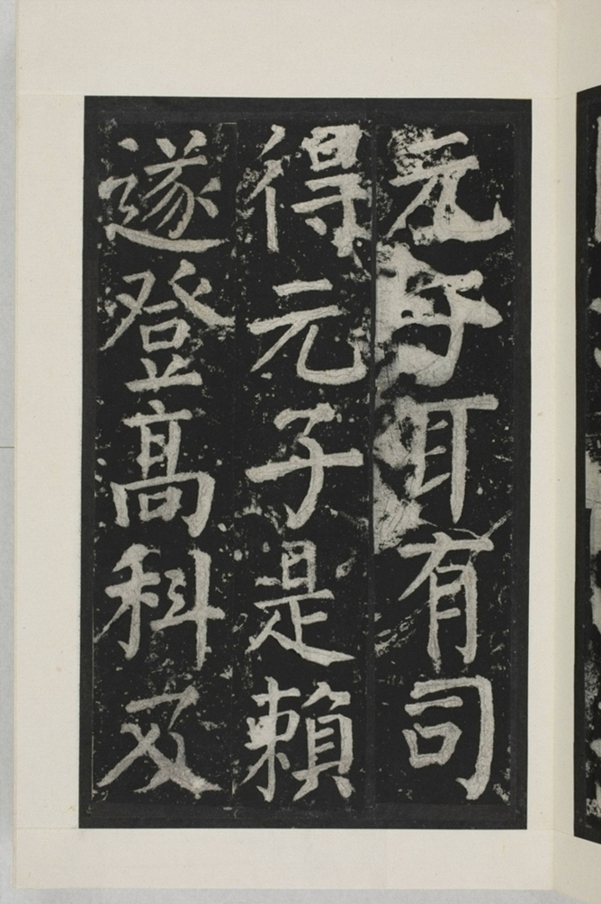 元子耳有司
得元子是賴
遂登高科及